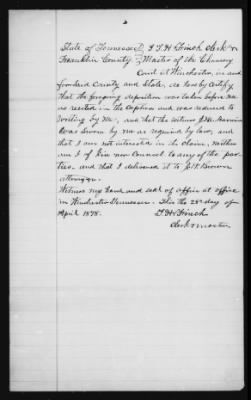 State of Tennessee } I T. H. Finch clerk &
Franklin County } Master of the Chancery
Court at Winchester, in and
for said County and State, do hereby certify
that the foregoing deposition was taken before me
as recited in the caption and was reduced to
writing by me, and that the witness
was sworn by me as required by law, and
that I am not interested in the claim, neither
am I of Kin nor Counsel to any of the par-
ties and that I delivered it to Brown
attorney.
Witness my hand and seal of office at office
in Winchester Tennessee. This the 28th day of
April 1878.
T. H. Finch
clerk & master